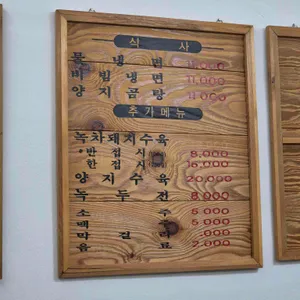 식 사
물 냉 면
비 빔 냉 면 11,000
양 지 곰 탕
추가메뉴
녹차돼지수육
반 접 시 8,000
한 접 시 16,000
양 지 수 육 20,000
녹 두 전 8,000
소 주 5,000
맥 주 5,000
막 걸 리
음 료 2,000